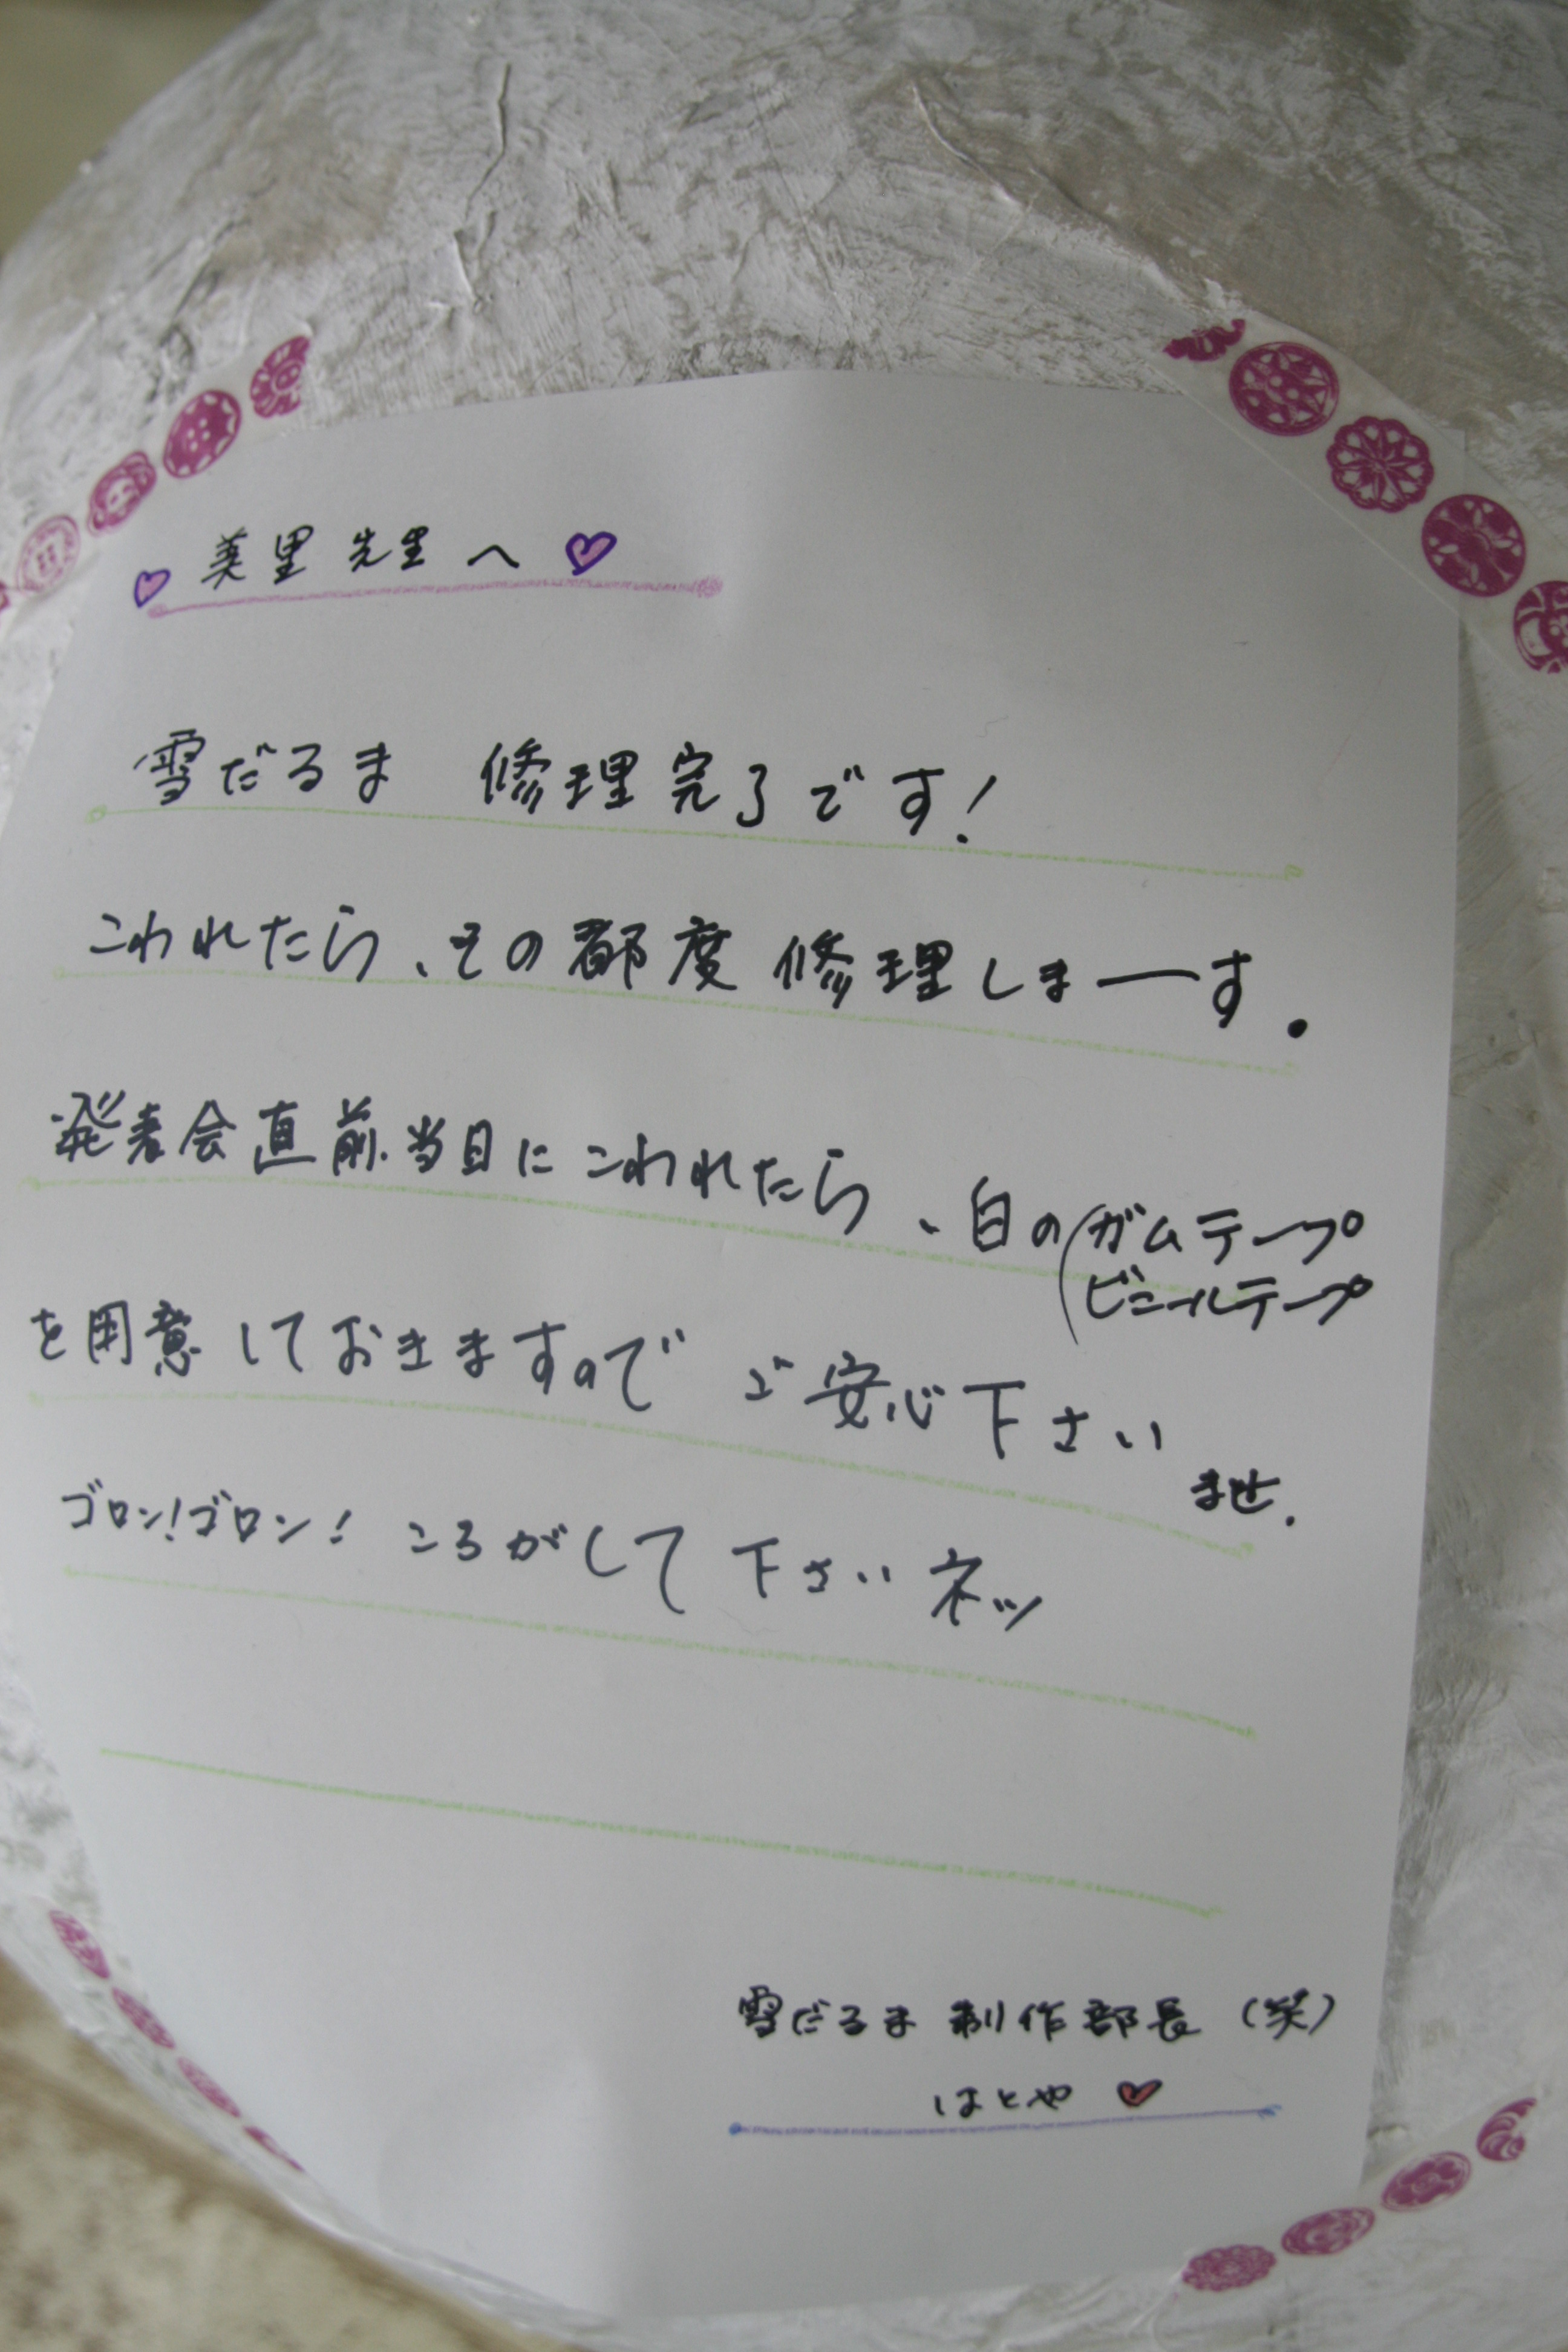 美里先生へ
雪だるま 修理完了です!
こわれたら、その都度修理しまーす.
発表会直前.当日にこわれたら、白の(ガムテープ
ビニールテープ
を用意しておきますので ご安心下さい
ませ.
ゴロン!ゴロン! ころがして下さいネッ
雪だるま制作部長(笑)
はとや